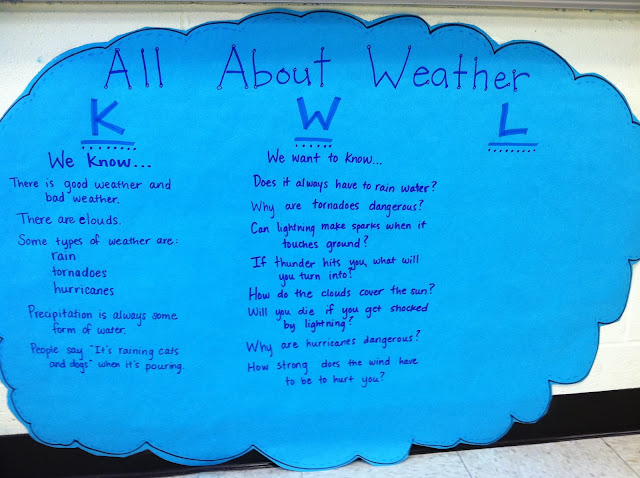 All About Weather
K
We Know...
There is good weather and
bad weather.
There are clouds.
Some types of weather are:
rain
tornadoes
hurricanes
Precipitation is always some
form of water.
People say "It's raining cats
and dogs" when it's pouring.
W
We want to know...
Does it always have to rain water?
Why are tornadoes dangerous?
Can lightning make sparks when it
touches ground?
If thunder hits you, what will
you turn into?
How do the clouds cover the sun?
Will you die if you get shocked
by lightning?
Why are hurricanes dangerous?
How strong does the wind have
to be to hurt you?
L